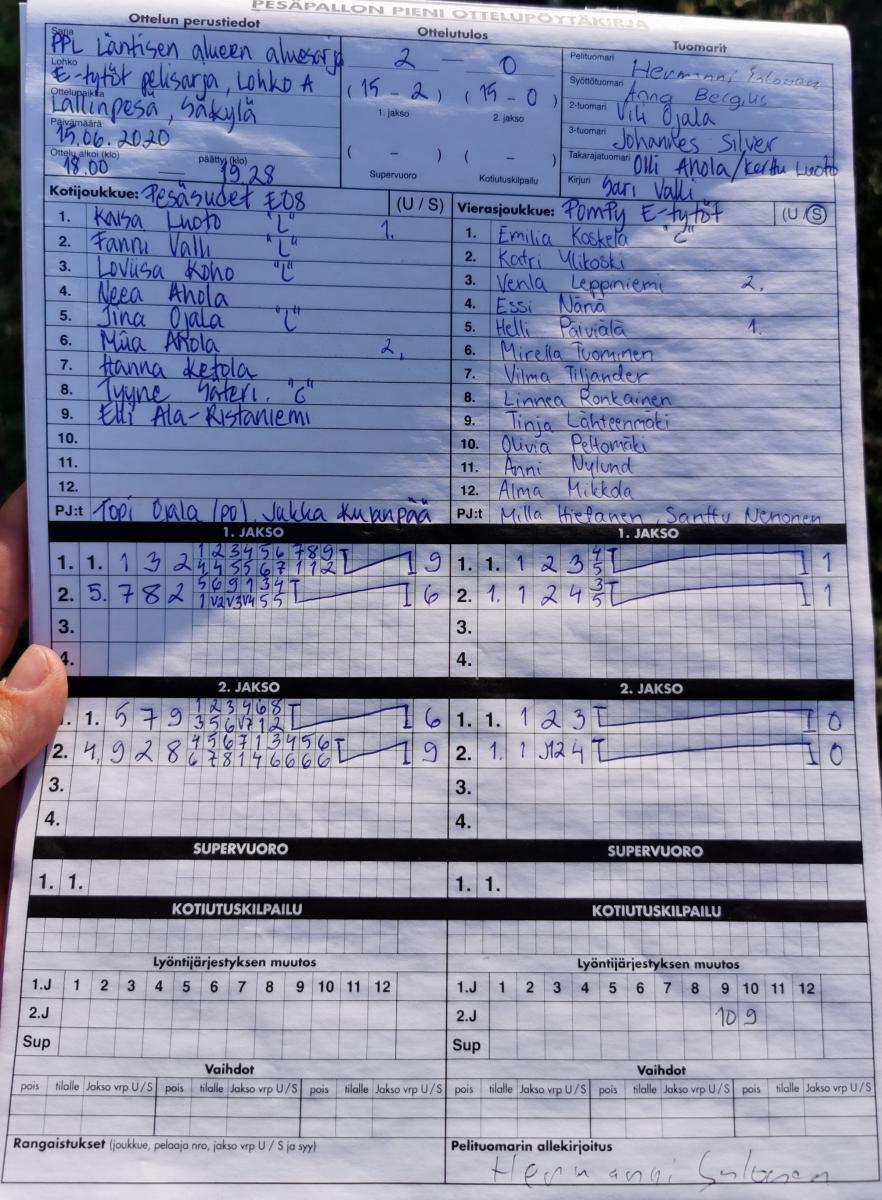 PESÄPALLON PIENI OTTELUPÖYTÄKIRJA
Ottelun perustiedot
Sarja
PPL Läntisen alueen aluesarja
Lohko
E-tytöt pelisarja, Lohko A
Ottelupaikka
Lallinpesä, Säkylä
Päivämäärä
15.06.2020
Ottelu alkoi (klo) päättyi (klo)
18.00 - 19.28
Ottelutulos
2 - 0
(15 - 2) (15 - 0)
1. jakso 2. jakso
( - ) ( - )
Supervuoro Kotiutuskilpailu
Tuomarit
Pelituomari Hermanni Salonen
Syöttötuomari Anna Bergius
2-tuomari Vili Ojala
3-tuomari Johannes Silver
Takarajatuomari Olli Ahola/Kerttu Luoto
Kirjuri Sari Valli
Kotijoukkue: Pesäsudet E08 (U / S)
1. Kaisa Luoto "L" 1.
2. Fanni Valli "L"
3. Loviisa Koho "L"
4. Neea Ahola
5. Jina Ojala "L"
6. Miia Ahola 2.
7. Hanna Ketola
8. Tyyne Säteri. "C"
9. Elli Ala-Ristaniemi
10.
11.
12.
PJ:t Topi Ojala (po), Jukka Kuanpää
Vierasjoukkue: PomPy E-tytöt (U / S)
1. Emilia Koskela "C"
2. Katri Ylikoski
3. Venla Leppiniemi 2.
4. Essi Närvä
5. Helli Päiviälä 1.
6. Mirella Tuominen
7. Vilma Tiljander
8. Linnea Ronkainen
9. Tinja Lähteenmäki
10. Olivia Peltomäki
11. Anni Nylund
12. Alma Mikkola
PJ:t Milla Hietanen, Santtu Nenonen
1. JAKSO
1. 1. 1 3 2 1 2 3 4 5 6 7 8 9 9
4 4 5 5 6 7 1 1 2
2. 5. 7 8 2 5 6 9 1 3 4 6
1 V2 V3 V4 5 5
3.
4.
1. JAKSO
1. 1. 1 2 3 4 1
5
2. 1. 1 2 4 3 1
5
3.
4.
2. JAKSO
1. 1. 5 7 9 1 2 3 4 6 8 6
3 5 6 V7 1 2
2. 4. 9 2 8 4 5 6 7 1 3 4 5 6 9
6 7 8 1 4 6 6 6 6
3.
4.
2. JAKSO
1. 1. 1 2 3 0
2. 1. 1 12 4 0
3.
4.
SUPERVUORO
1. 1.
SUPERVUORO
1. 1.
KOTIUTUSKILPAILU
KOTIUTUSKILPAILU
Lyöntijärjestyksen muutos
1.J 1 2 3 4 5 6 7 8 9 10 11 12
2.J
Sup
Lyöntijärjestyksen muutos
1.J 1 2 3 4 5 6 7 8 9 10 11 12
2.J 10 9
Sup
Vaihdot
pois tilalle Jakso vrp U / S pois tilalle Jakso vrp U / S pois tilalle Jakso vrp U / S
Vaihdot
pois tilalle Jakso vrp U / S pois tilalle Jakso vrp U / S pois tilalle Jakso vrp U / S
Rangaistukset (joukkue, pelaaja nro, jakso vrp U / S ja syy)
Pelituomarin allekirjoitus
Hermanni Salonen